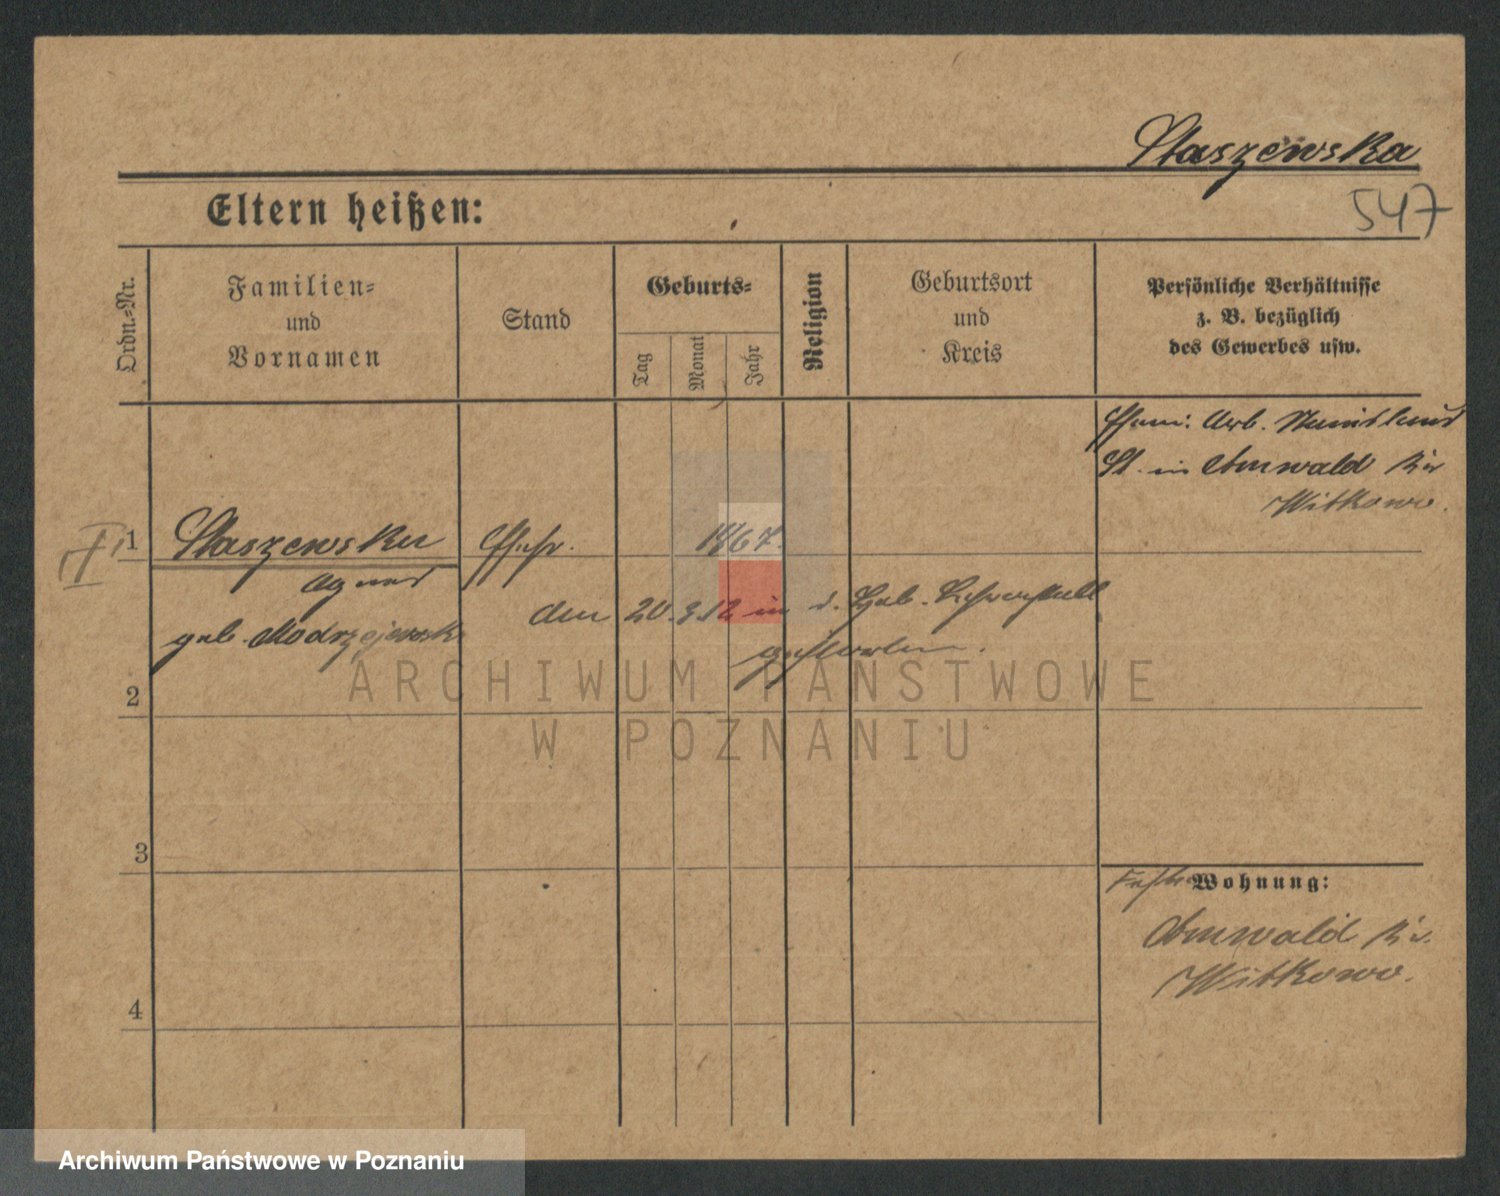 Staszewska
547
Eltern heißen:
Ordn.-Nr.
Familien-
und
Vornamen
Stand
Geburts-
Tag
Monat
Jahr
Religion
Geburtsort
und
Kreis
Persönliche Verhältnisse
z. B. bezüglich
des Gewerbes usw.
Ehem: Arb. Stanislaus
St. in
Witkowo.
1
Staszewska
Ehefr.
1867.
Agnes
geb. Modrzejewsk
den 20.3.12 in d. Heb. Lehranstalt
gestorben.
2
3
4
Wohnung:
Witkowo.
ARCHIWUM PAŃSTWOWE
W POZNANIU
Archiwum Państwowe w Poznaniu